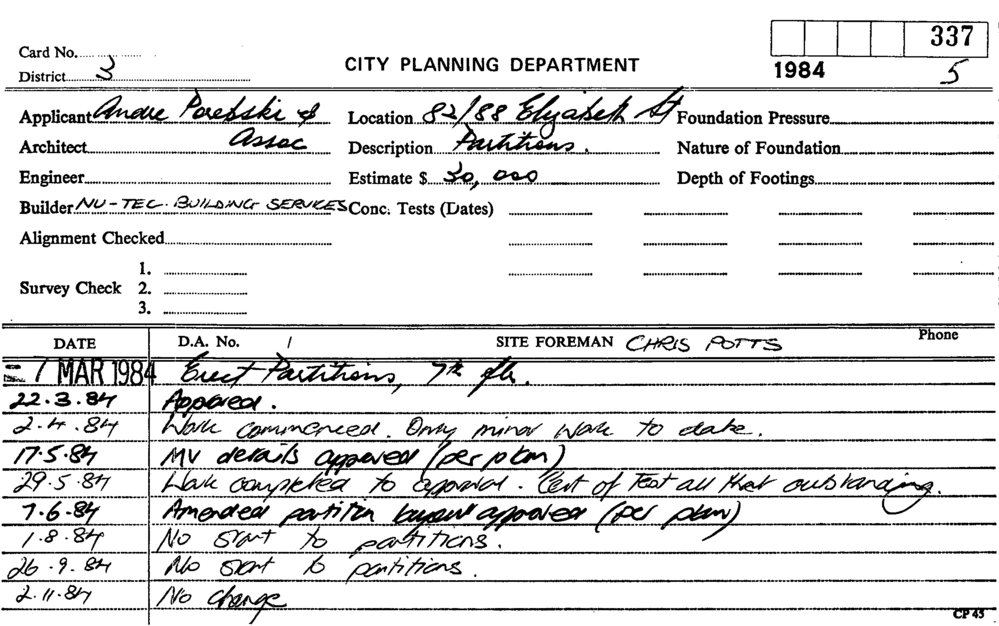 337
Card No.
CITY PLANNING DEPARTMENT
1984 5
District 3
Applicant Andre Porebski & Location 82/88 Elizabeth St Foundation Pressure
Architect Assoc Description Partitions. Nature of Foundation
Engineer Estimate $ 30,000 Depth of Footings
Builder NU-TEC. BUILDING SERVICES Conc. Tests (Dates)
Alignment Checked
1.
Survey Check 2.
3.
DATE D.A. No. / SITE FOREMAN CHRIS POTTS Phone
- 7 MAR 1984 Erect Partitions, 7th flr.
22.3.84 Approved.
2.4.84 Work commenced. Only minor work to date.
17.5.84 MV details approved (per plan)
29.5.84 Work completed to approval. Cert of Test all that outstanding.
7.6.84 Amended partition layout approved (per plan)
1.8.84 No start to partitions.
26.9.84 No start to partitions.
2.11.84 No change
CP 45